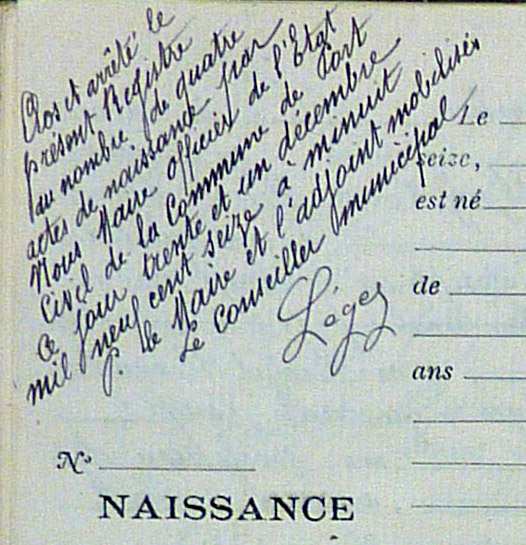 Clos et arrêté le
présent Registre
au nombre de quatre
actes de naissance par
Nous Maire officier de l'Etat
Civil de la Commune de Port
Ce jour trente et un décembre
mil neuf cent seize à minuit
p. le Maire et l'adjoint mobilisés
Le Conseiller municipal
Léger
Le
seize,
est né
de
ans
N°
NAISSANCE